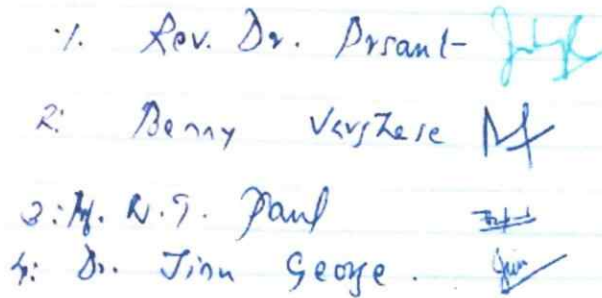 1. Rev. Dr. Prsant
2: Benny Varghese
3: N. T. Paul
4: Dr. Jinu George.